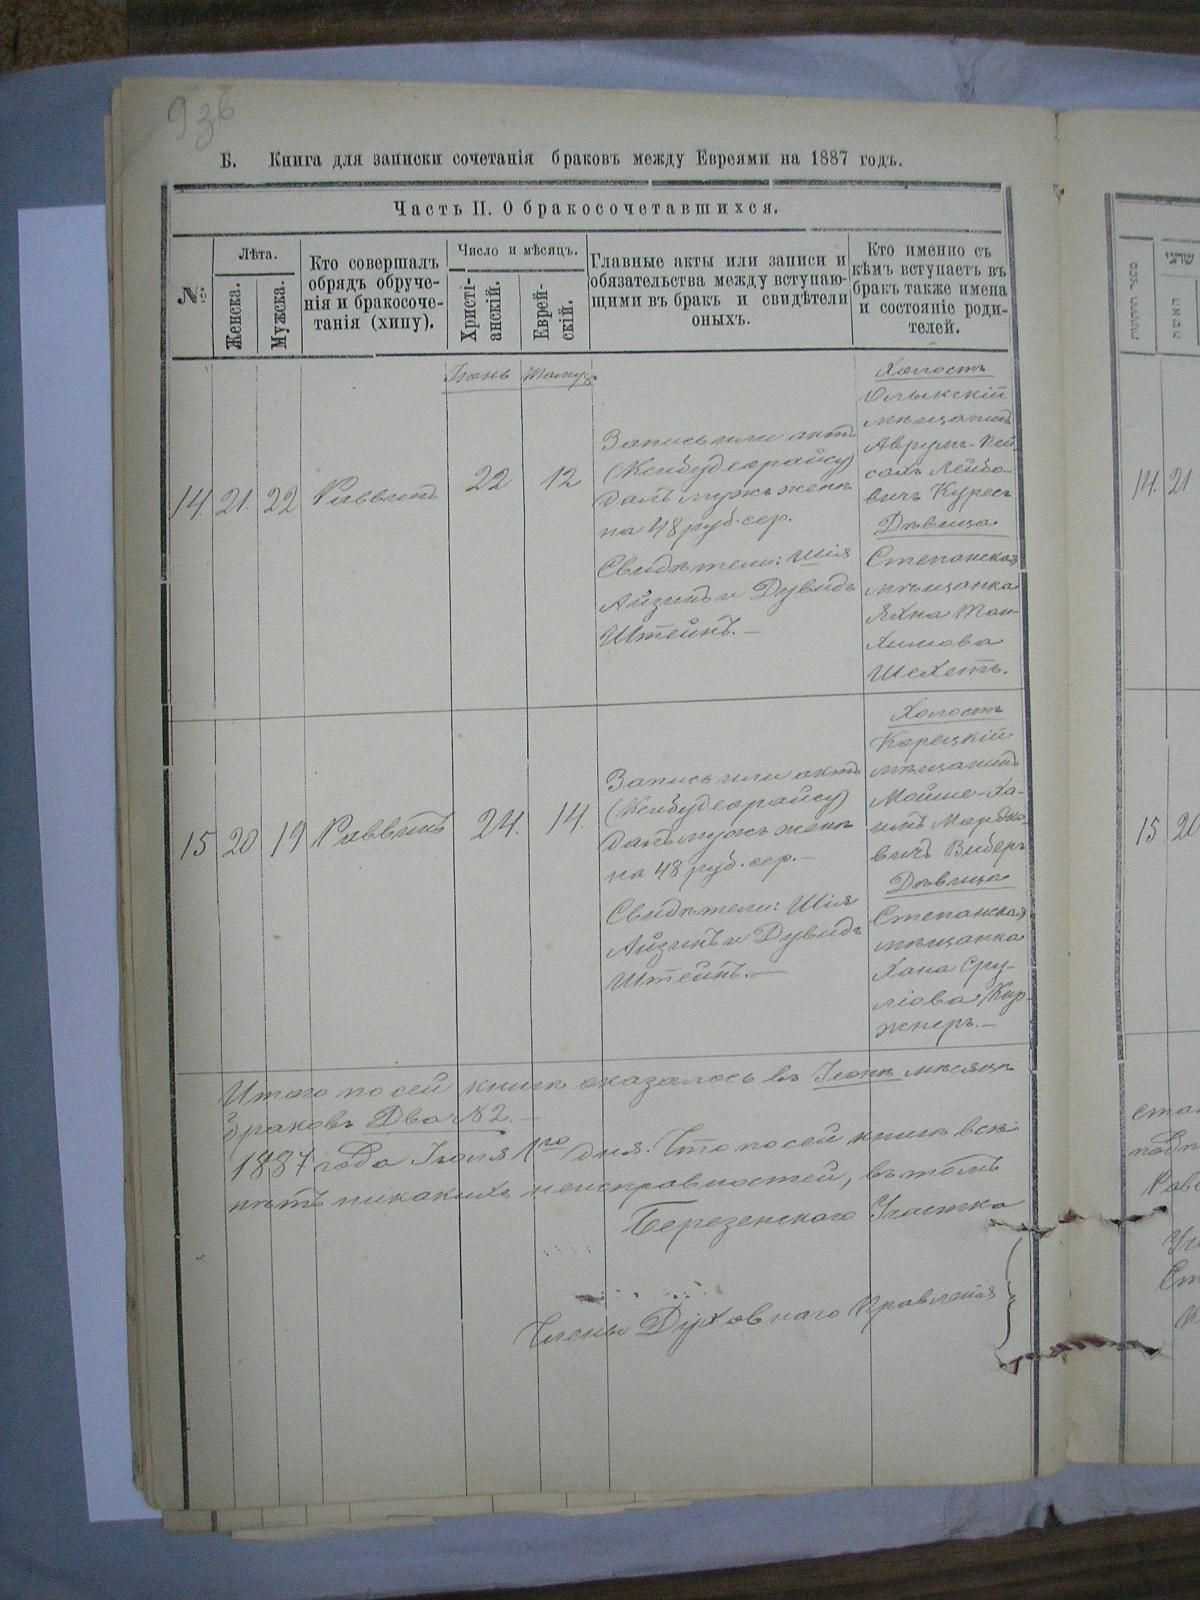 936
Б. Книга для записки сочетанія браковъ между Евреями на 1887 годъ.
Часть II. О бракосочетавшихся.
№:
Лѣта.
Женска.
Мужска.
Кто совершалъ
обрядъ обруче-
нія и бракосоче-
танія (хипу).
Число и мѣсяцъ.
Христі-
анскій.
Еврей-
скій.
Главные акты или записи и
обязательства между вступаю-
щими въ бракъ и свидѣтели
оныхъ.
Кто именно съ
кѣмъ вступаетъ въ
бракъ также имена
и состояніе роди-
телей.
Іюнь
Тамуз
14.
21.
22
Раввинъ
22
12
Запись или актъ
далъ мужъ женѣ
на 48 руб. сер.
Свидѣтели: Шія
Айзинъ и Дувидъ
Штейнъ.—
Холостъ
Олыкскій
мѣщанинъ
Аврумъ-Пей-
сахъ Лейбо-
вичъ
Дѣвица
Степанская
мѣщанка
Яхна
Шехетъ.
15
20
19
Раввинъ
24.
14.
Запись или актъ
далъ мужъ женѣ
на 48 руб. сер.—
Свидѣтели: Шія
Айзинъ и Дувидъ
Штейнъ.—
Холостъ
Корецкій
мѣщанинъ
Мойше-Ха-
имъ Мордко-
вичъ Виберъ
Дѣвица
Степанская
мѣщанка
Хана Сру-
ліова Кир-
жнеръ.—
Итого по сей книгѣ оказалось въ Іюнѣ мѣсяцѣ
браковъ Два №2.—
1887 года Іюля 1го дня. Что по сей книгѣ
нѣтъ никакихъ неисправностей, въ томъ
Березенскаго Участка
Члены Духовнаго Правленія
14.
21
15
20